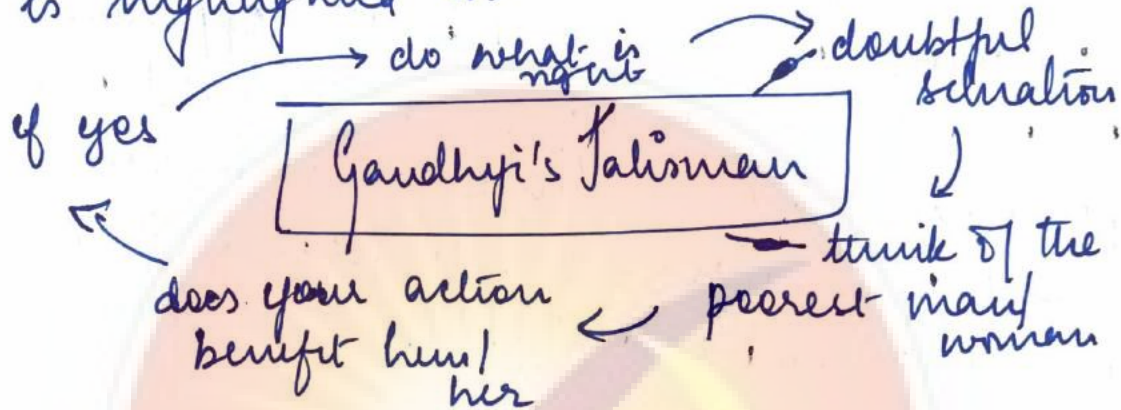 is highlighted
do what is right
doubtful situation
if yes
Gandhiji's Talisman
think of the poorest man/woman
does your action benefit him/her